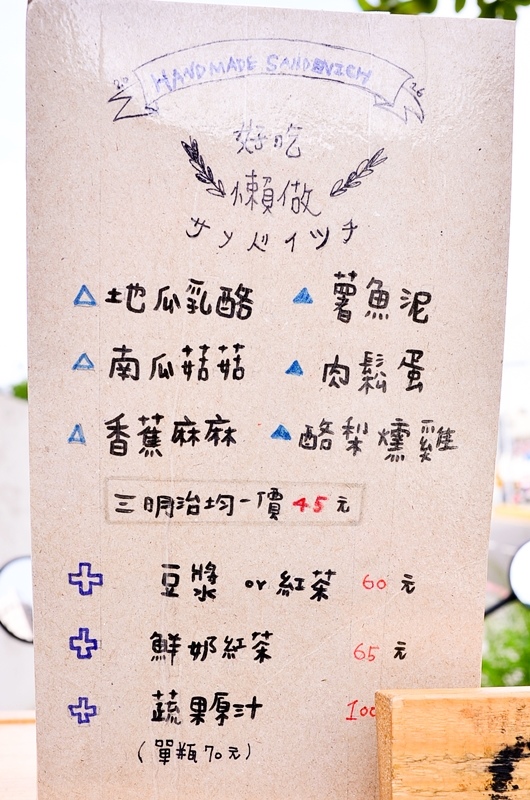 20 HANDMADE SANDWICH 26
好吃
懶做
サンドイッチ
地瓜乳酪 薯魚泥
南瓜菇菇 肉鬆蛋
香蕉麻麻 酪梨燻雞
三明治均一價 45 元
豆漿 or 紅茶 60 元
鮮奶紅茶 65 元
蔬果原汁 100
(單瓶70元)